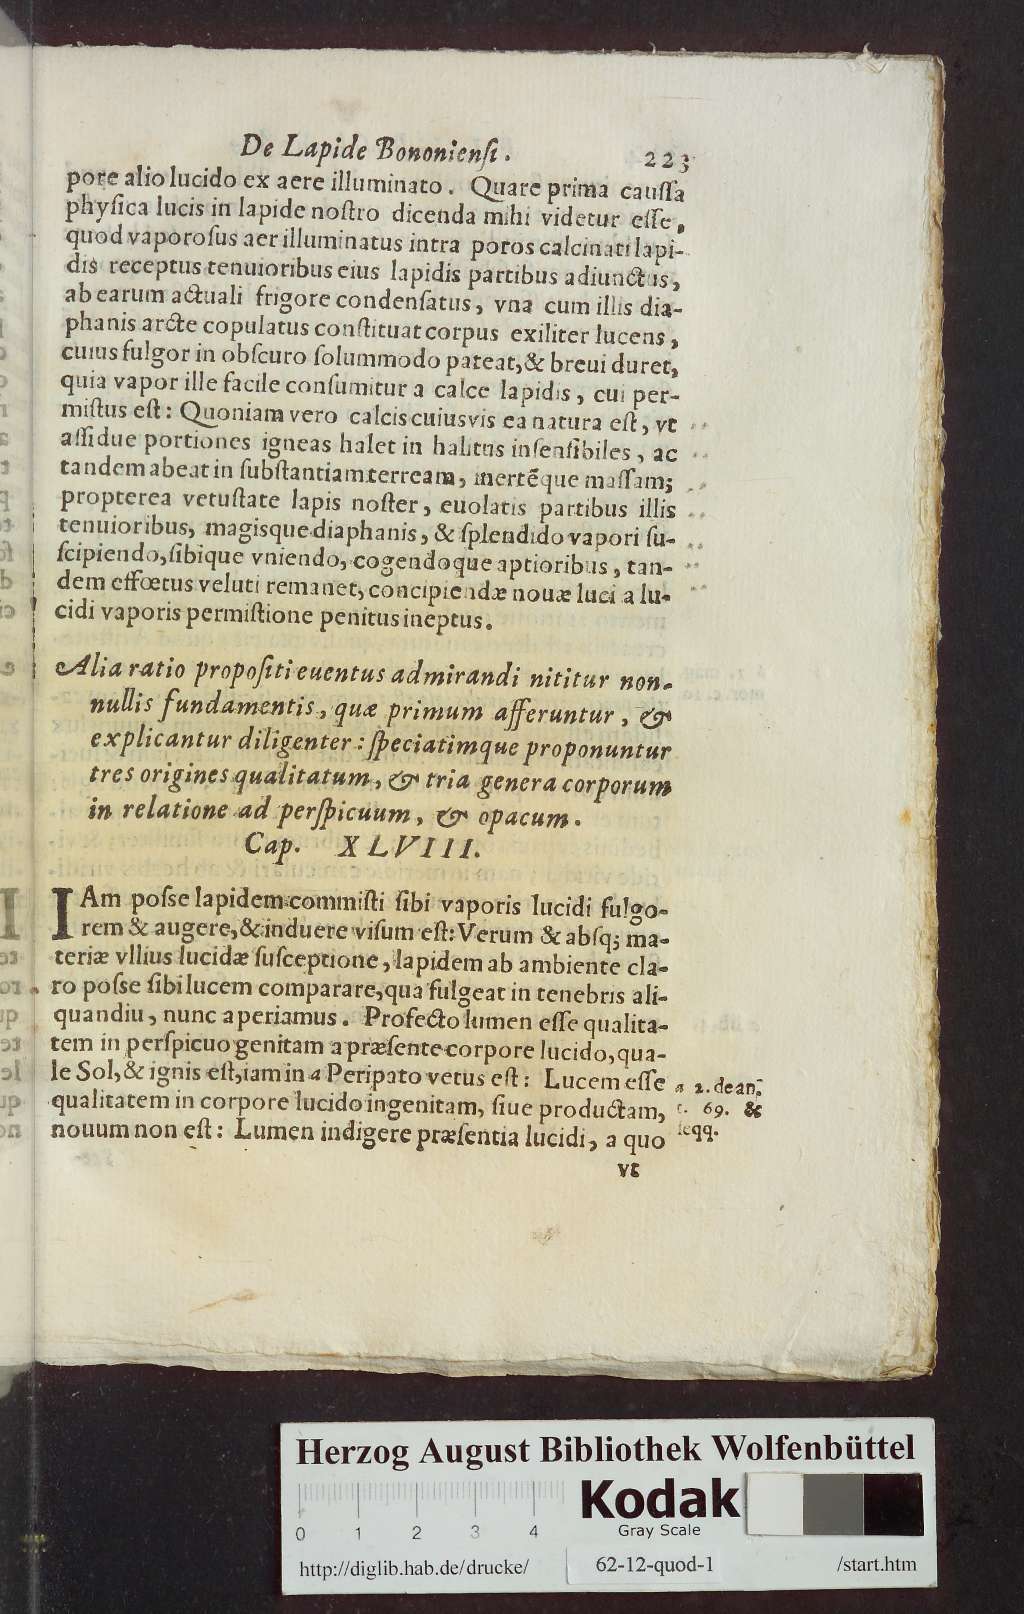 De Lapide Bononienſi. 223
pore alio lucido ex aere illuminato. Quare prima cauſſa
phyſica lucis in lapide noſtro dicenda mihi videtur eſſe,
quod vaporoſus aer illuminatus intra poros calcinati lapi-
dis receptus tenuioribus eius lapidis partibus adiunctus,
ab earum actuali frigore condenſatus, vna cum illis dia-
phanis arcte copulatus conſtituat corpus exiliter lucens,
cuius fulgor in obſcuro ſolummodo pateat, & breui duret,
quia vapor ille facile conſumitur a calce lapidis, cui per-
miſtus eſt: Quoniam vero calcis cuiusvis ea natura eſt, vt
aſſidue portiones igneas halet in halitus inſenſibiles, ac
tandem abeat in ſubſtantiam terream, inertēque maſſam;
propterea vetuſtate lapis noſter, euolatis partibus illis
tenuioribus, magisque diaphanis, & ſplendido vapori ſu-
ſcipiendo, ſibique vniendo, cogendoque aptioribus, tan-
dem effœtus veluti remanet, concipiendæ nouæ luci a lu-
cidi vaporis permiſtione penitus ineptus.
Alia ratio propoſiti euentus admirandi nititur non-
nullis fundamentis, quæ primum afferuntur, &
explicantur diligenter: ſpeciatimque proponuntur
tres origines qualitatum, & tria genera corporum
in relatione ad perſpicuum, & opacum.
Cap. XLVIII.
IAm poſse lapidem commiſti ſibi vaporis lucidi fulgo-
rem & augere, & induere viſum eſt: Verum & absq; ma-
teriæ vllius lucidæ ſuſceptione, lapidem ab ambiente cla-
ro poſse ſibi lucem comparare, qua fulgeat in tenebris ali-
quandiu, nunc aperiamus. Profecto lumen eſſe qualita-
tem in perſpicuo genitam a præſente corpore lucido, qua-
le Sol, & ignis eſt, iam in a Peripato vetus eſt: Lucem eſſe
qualitatem in corpore lucido ingenitam, ſiue productam,
nouum non eſt: Lumen indigere præſentia lucidi, a quo
vt
a 2. de an.
t. 69. &
ſeqq.
Herzog August Bibliothek Wolfenbüttel
0 1 2 3 4
Kodak
Gray Scale
http://diglib.hab.de/drucke/ 62-12-quod-1 /start.htm